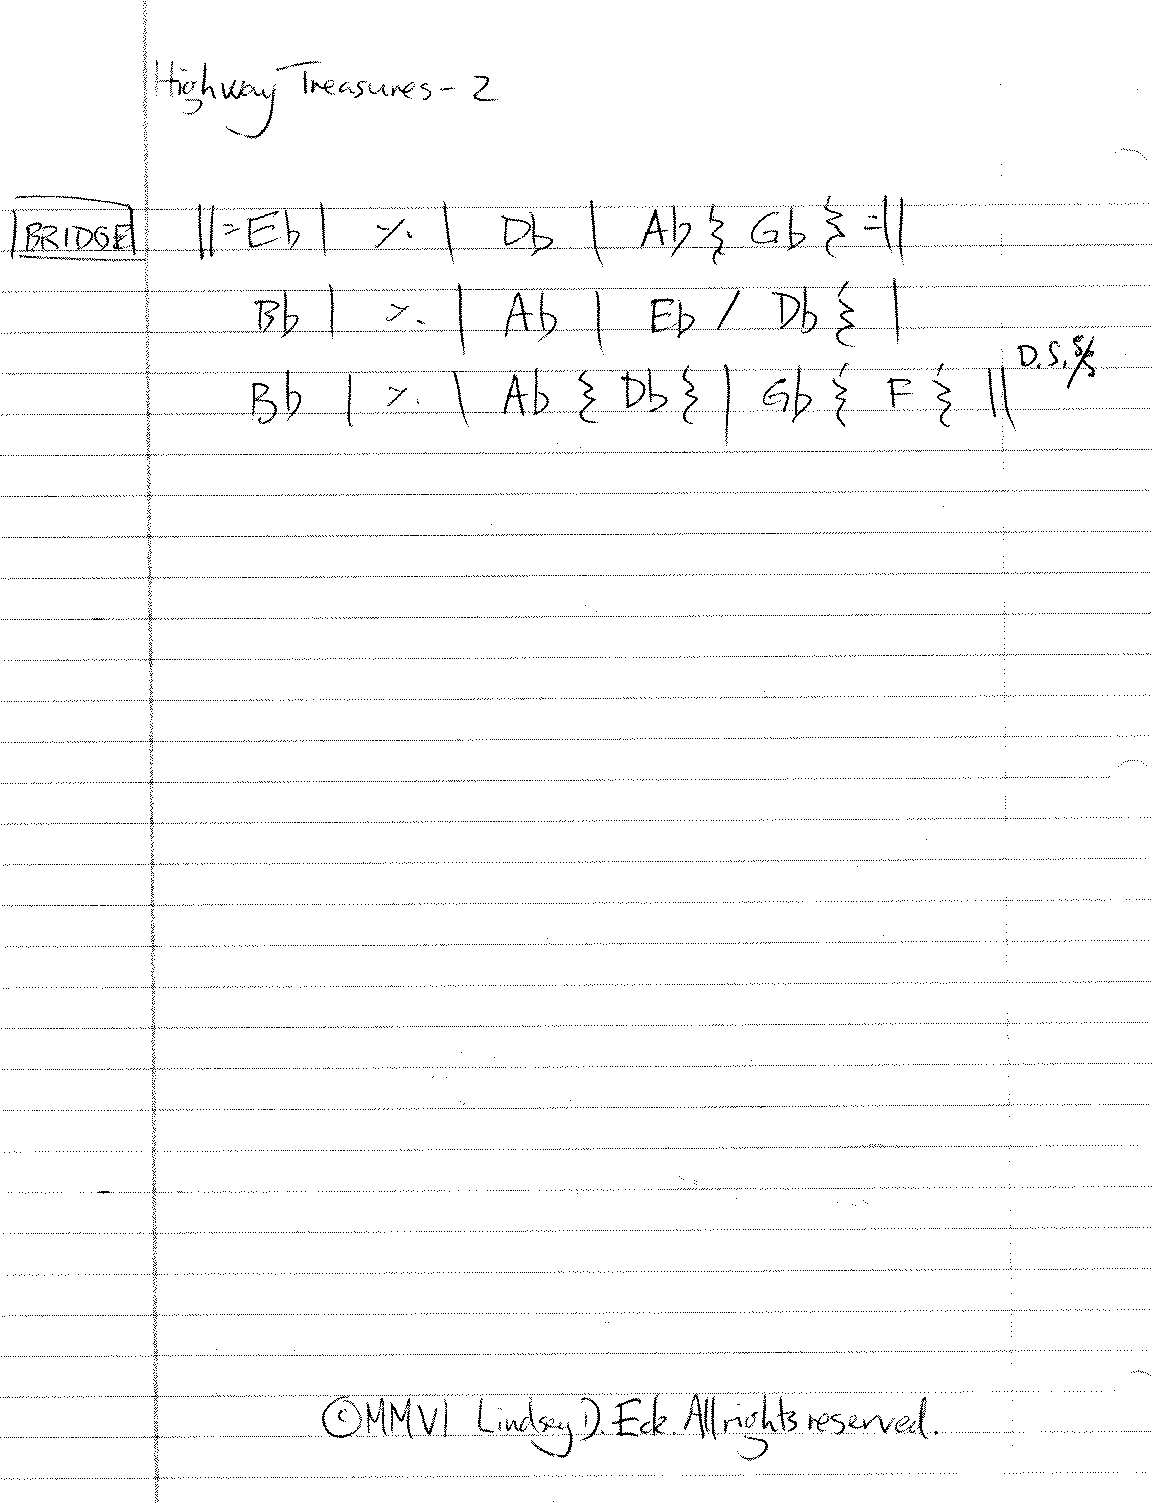 Highway Treasures - 2
BRIDGE ||:Eb | ٪ | Db | Ab 𝄽 Gb 𝄽 :||
Bb | ٪ | Ab | Eb / Db 𝄽 |
Bb | ٪ | Ab 𝄽 Db 𝄽 | Gb 𝄽 F 𝄽 || D.S. 𝄋
©MMVI Lindsey D. Eck. All rights reserved.